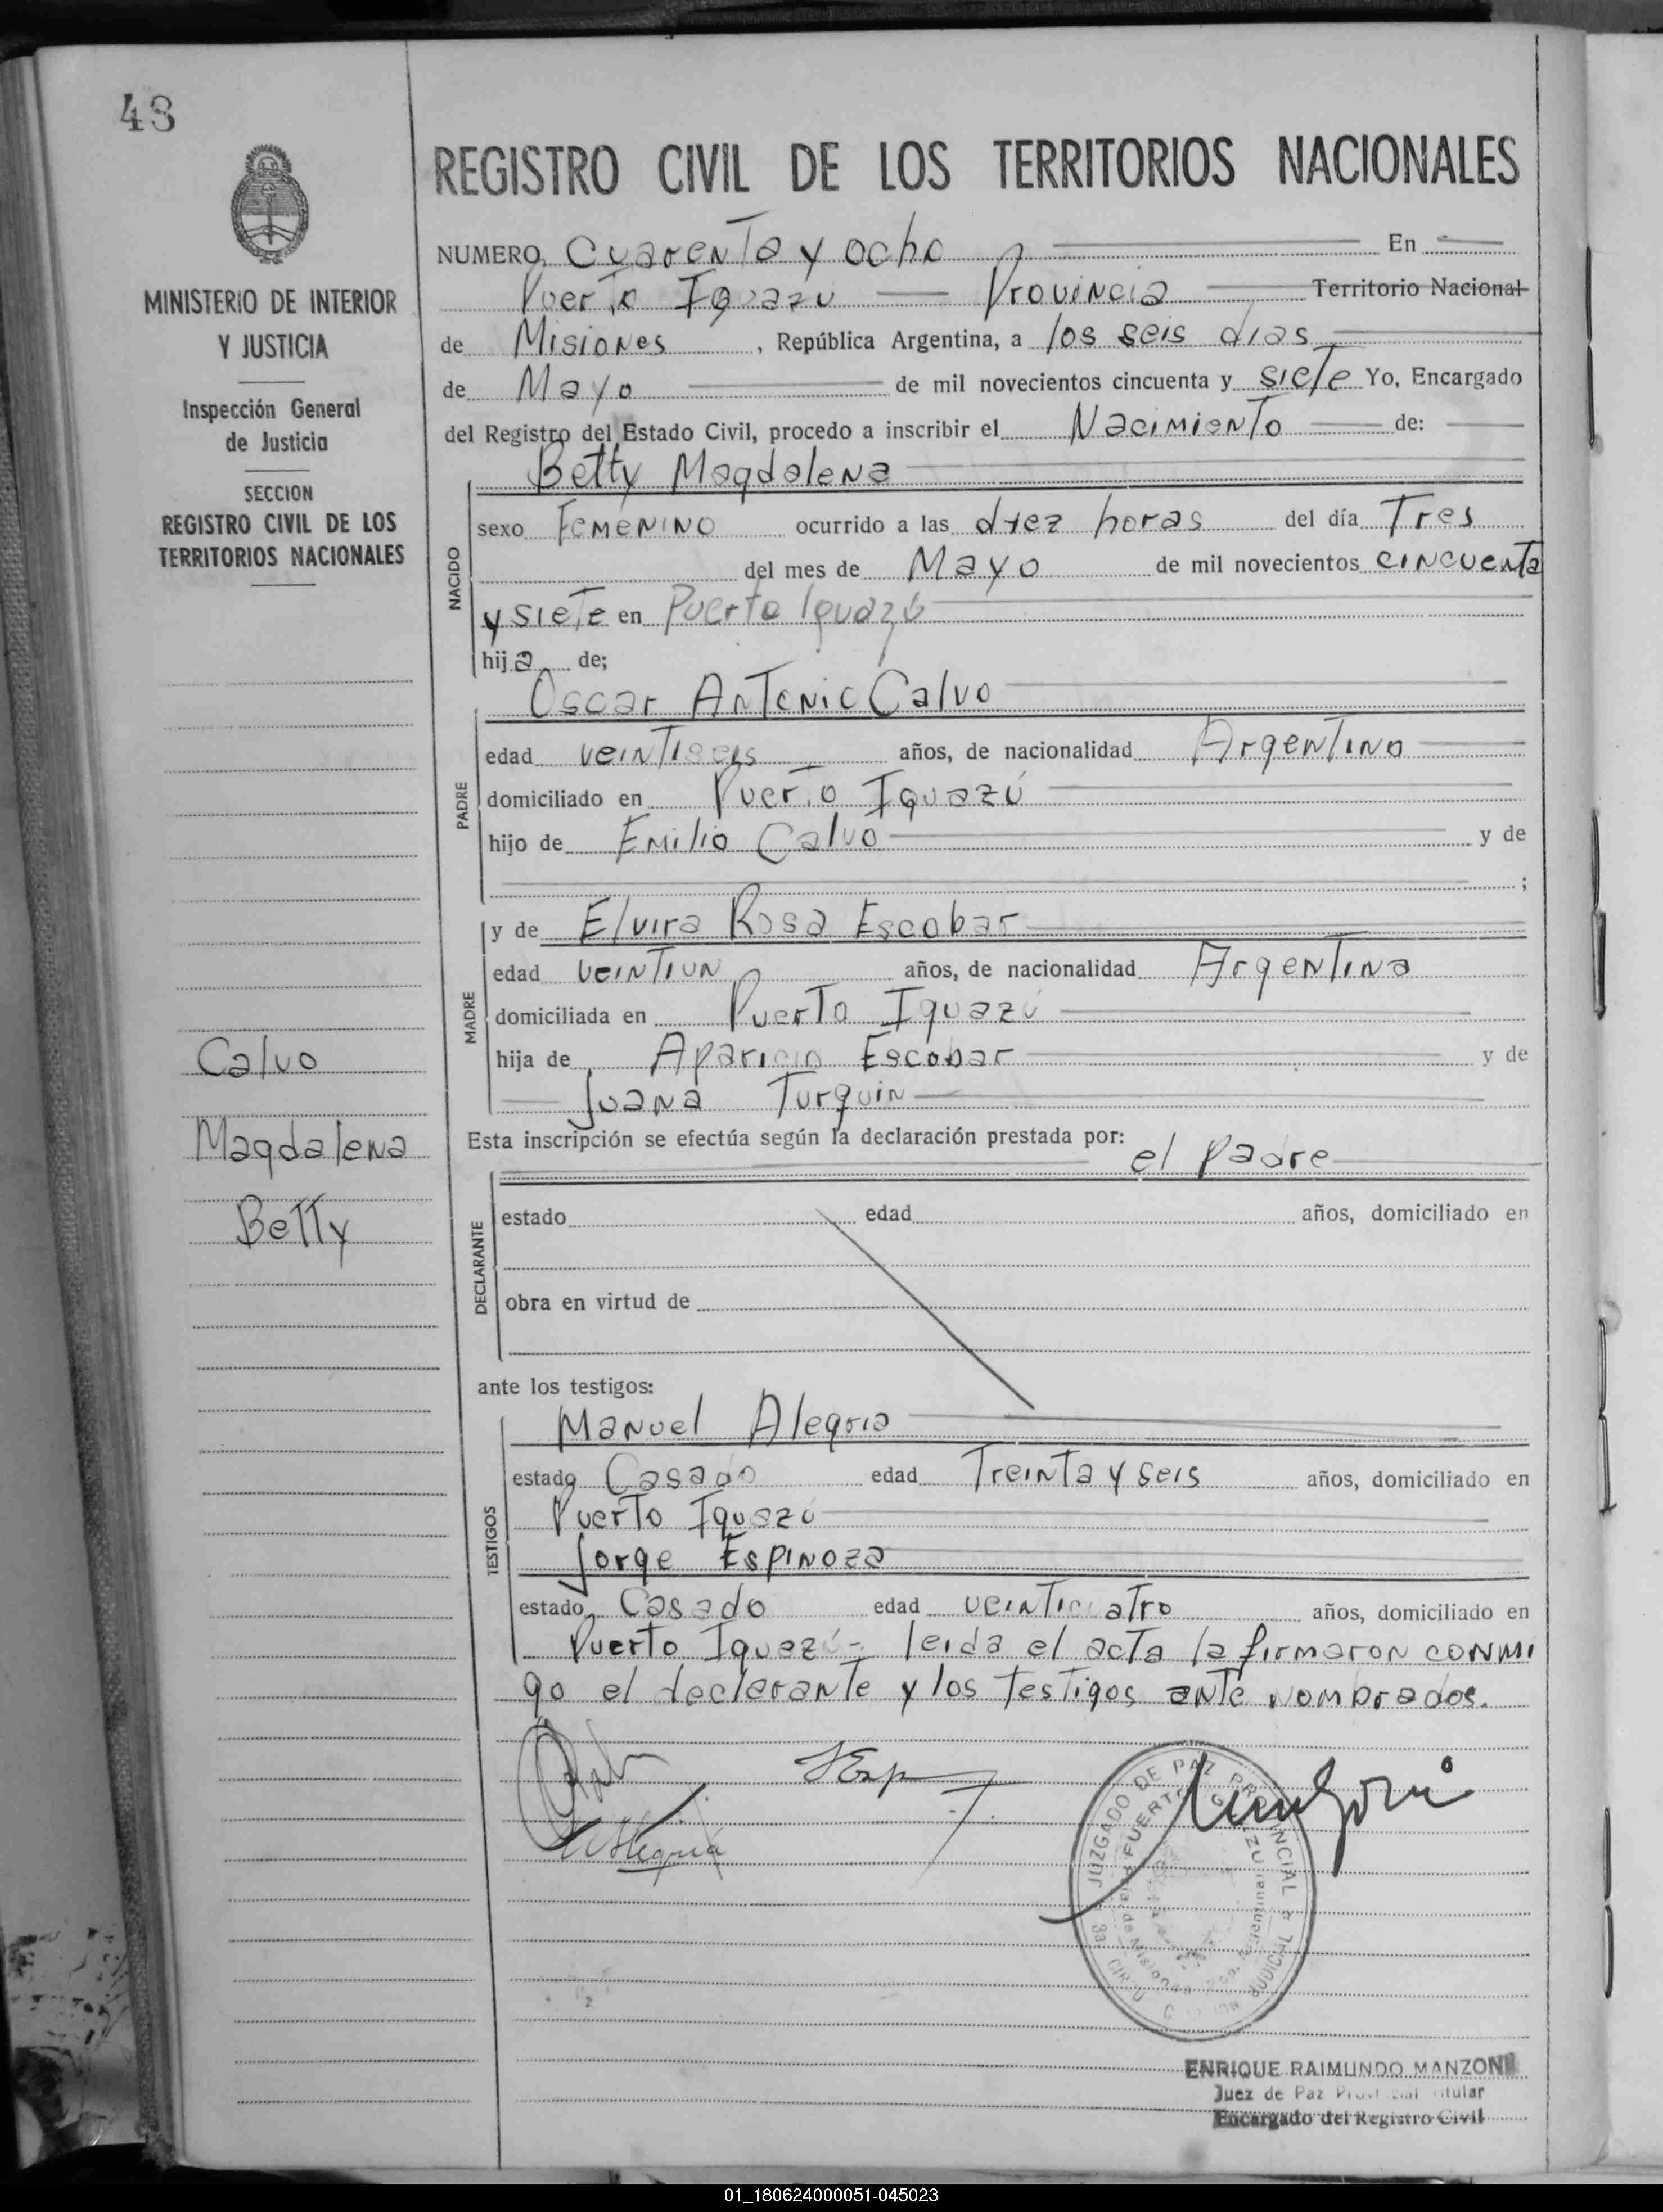 48
REGISTRO CIVIL DE LOS TERRITORIOS NACIONALES
MINISTERIO DE INTERIOR
Y JUSTICIA
Inspección General
de Justicia
SECCION
REGISTRO CIVIL DE LOS
TERRITORIOS NACIONALES
Calvo
Magdalena
Betty
NUMERO Cuarenta y ocho En
Puerto Iguazu Provincia Territorio Nacional
de Misiones, República Argentina, a los seis dias
de Mayo de mil novecientos cincuenta y siete Yo, Encargado
del Registro del Estado Civil, procedo a inscribir el Nacimiento de:
Betty Magdalena
NACIDO
sexo Femenino ocurrido a las diez horas del día Tres
del mes de Mayo de mil novecientos cincuenta
y siete en Puerto Iguazú
hija de;
Oscar Antonio Calvo
PADRE
edad veintiseis años, de nacionalidad Argentino
domiciliado en Puerto Iguazú
hijo de Emilio Calvo y de
;
y de Elvira Rosa Escobar
MADRE
edad veintiun años, de nacionalidad Argentina
domiciliada en Puerto Iguazú
hija de Aparicio Escobar y de
Juana Turquin
Esta inscripción se efectúa según la declaración prestada por: el padre
DECLARANTE
estado edad años, domiciliado en
obra en virtud de
ante los testigos:
Manuel Alegria
TESTIGOS
estado Casado edad Treinta y seis años, domiciliado en
Puerto Iguazú
Jorge Espinoza
estado Casado edad veinticuatro años, domiciliado en
Puerto Iguazú - leida el acta la firmaron conmi
go el declarante y los testigos ante nombrados.
Alegria
Manzoni
JUZGADO DE PAZ PROVINCIAL
PUERTO IGUAZU
de Misiones Rep. Argentina
JUDICIAL
ENRIQUE RAIMUNDO MANZONI
Juez de Paz Provincial Titular
Encargado del Registro Civil
01_180624000051-045023